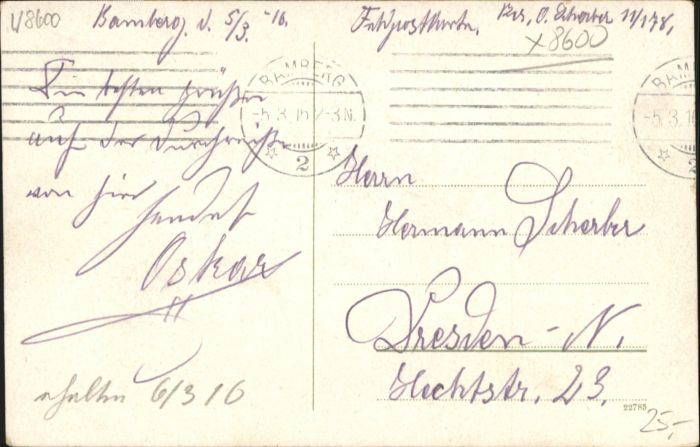 48600
Bamberg, d. 5/3. -16.
Feldpostkarte. Res. O. Scherber 11/178,
x8600
BAMBERG
-5.3.16 2-3N.
2
BAMB
-5.3.16
2
Die besten Grüße
auf der Durchreise
von hier
sendet
Oskar
erhalten 6/3 16
Herrn
Hermann Scherber
Dresden-N.
Hechtstr. 23.
22785
25,-